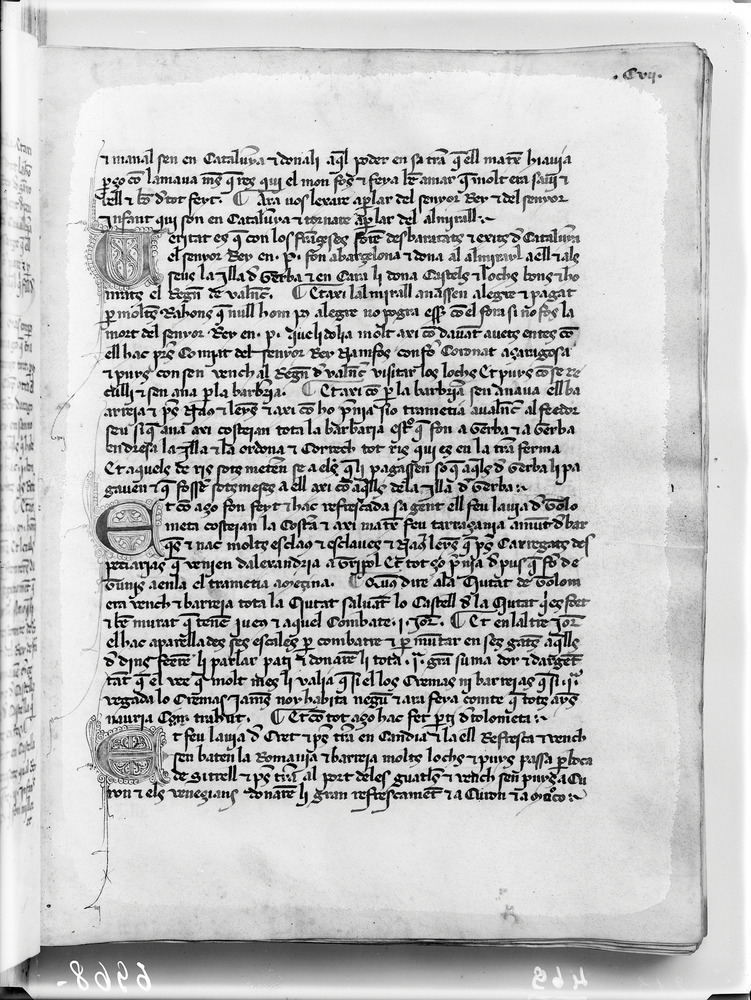 . Cvij.
⁊ manal sen en Cataluya ⁊ donali aq̃l poder en sa tr̃a q̃ ell mateix hiauia
p̱ço cõ lamaua mes q̃ res qui el mon fos ⁊ feya be amar q̃ molt era saui ⁊
⁊ bõ d̃ tot feyt. ¶ Ara uos lexare a p̱lar del senyor Rey ⁊ del senyor
infant qui son en Cataluya ⁊ tornare a p̱lar del almirall
Ueritat es q̃ con los franseses foren desbaratats ⁊ exits d̃ Cataluya
el senyor Rey en .p. fon abarcelona ⁊ dona al almirayl a ell ⁊ als
seus la ylla d̃ Gerba ⁊ en Cara li dona Castels ⁊ lochs bons ⁊ ho
nrats el Regne de valenc̃. ¶ Et axi lalmirall anassen alegre ⁊ pagat
p̱ moltes Rahons q̃ null hom pus alegre no pogra esser cõ el fora si no fos la
mort del senyor Rey en .p. que li dolia molt axi cõ dauant auets entes cõ
ell hac pres Comiat del senyor Rey Namfos con fo Coronat açaragosa
⁊ puys con sen vench al Regne d̃ valenc̃ visitar los lochs Et puys cõ se re
culli ⁊ sen ana p̱ la barbria. ¶ Et axi cõ p̱ la barbria sen anaua ell ba
rreia ⁊ pres Naos ⁊ lenys ⁊ axi cõ ho prenia sio trametia a valenc̃ al feedor
seu si q̃ ana axi costeian tota la barbaria estro q̃ fon a Gerba ⁊ a Gerba
endresa la ylla ⁊ la ordona ⁊ Correch tot ris qui es en la tr̃a ferma
Et aquels de ris sots meten se a ell q̃ li pagassen so q̃ aq̃ls d̃ Gerba li pa
gauen ⁊ q̃ fossen sotsmeses a ell axi cõ aq̃lls dela ylla d̃ Gerba
Et cõ aço fon feyt ⁊ hac refrescada sa gent ell feu la via d̃ tolo
meta costeian la Costa ⁊ axi mateix feu tarraçania amut d̃ bar
ques ⁊ nac molts esclaos ⁊ esclaues ⁊ Naos lenys q̃ pres Carregats des
peciarias q̃ venien dalexandria a Tripol Et tot ço prenia d̃ pus q̃ fo de
Tunis aenla el trametia a Meçina. ¶ Queus dire a la Ciutat de tolom
era vench ⁊ barreja tota la Ciutat saluat lo Castell d̃ la Ciutat q̃ es fort
⁊ be murat q̃ tenen jueus ⁊ aquel Combate .i. jor̃. ¶ Et en laltre jor̃
el hac aparellades ses escales p̱ combatre ⁊ p̱ muntar en ses gates aq̃lls
d̃ dins feeren li parlar pati ⁊ donaren li tota .i. gran suma dor ⁊ dargent
tat q̃ el vee q̃ molt mes li valia q̃ si el los Cremas ni barrejas q̃ si .i.
vegada lo Cremas james noy habita negu ⁊ ara feya comte q̃ tots ayrs
nauria Cert trahut. ¶ Et cõ tot aço hac fet parti d̃ tolometa
Et feu la via d̃ Cret ⁊ pres terra en Candia ⁊ la ell Refresca ⁊ vench
sen baten la Romania ⁊ barreia molts lochs ⁊ puys passa p̱ boca
de Sitrell ⁊ pres terra al port deles guatles ⁊ vench sen puys a Cu
ron ⁊ els venezians donaren li gran refrescament ⁊ a Curon ⁊ a Moto
6968-
469